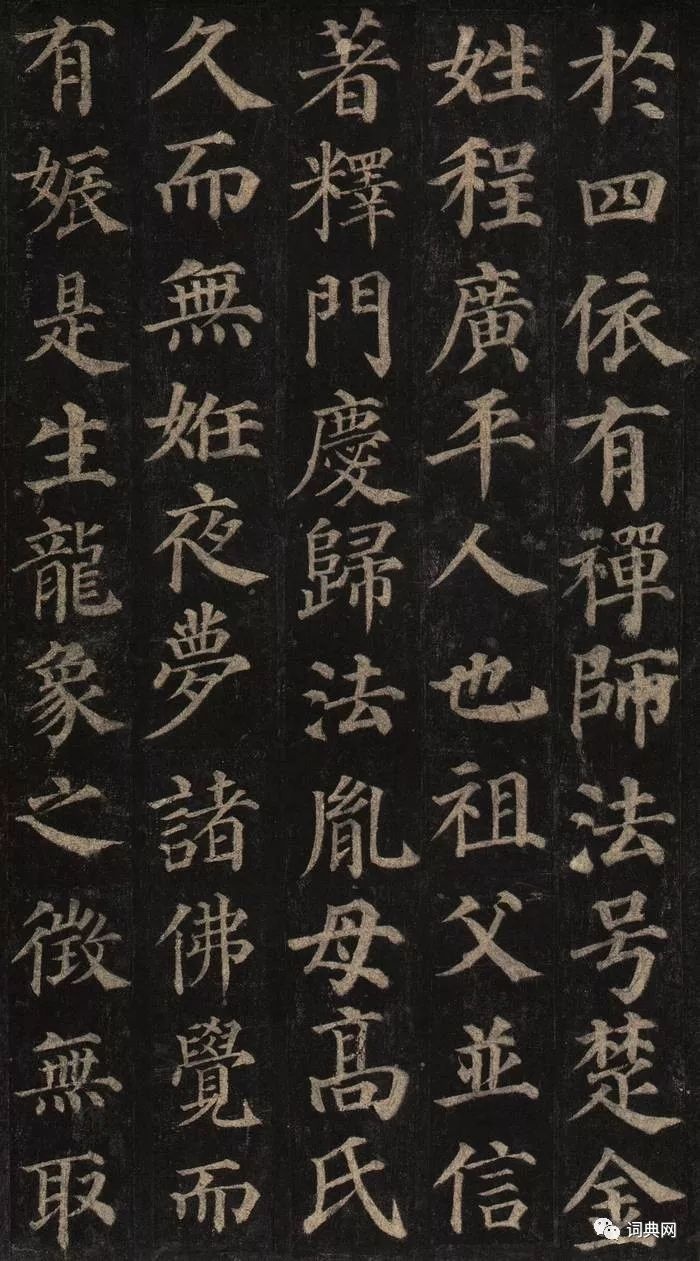 於四依有禪師法号楚金
姓程廣平人也祖父並信
著釋門慶歸法胤母高氏
久而無姙夜夢諸佛覺而
有娠是生龍象之徵無取
词典网